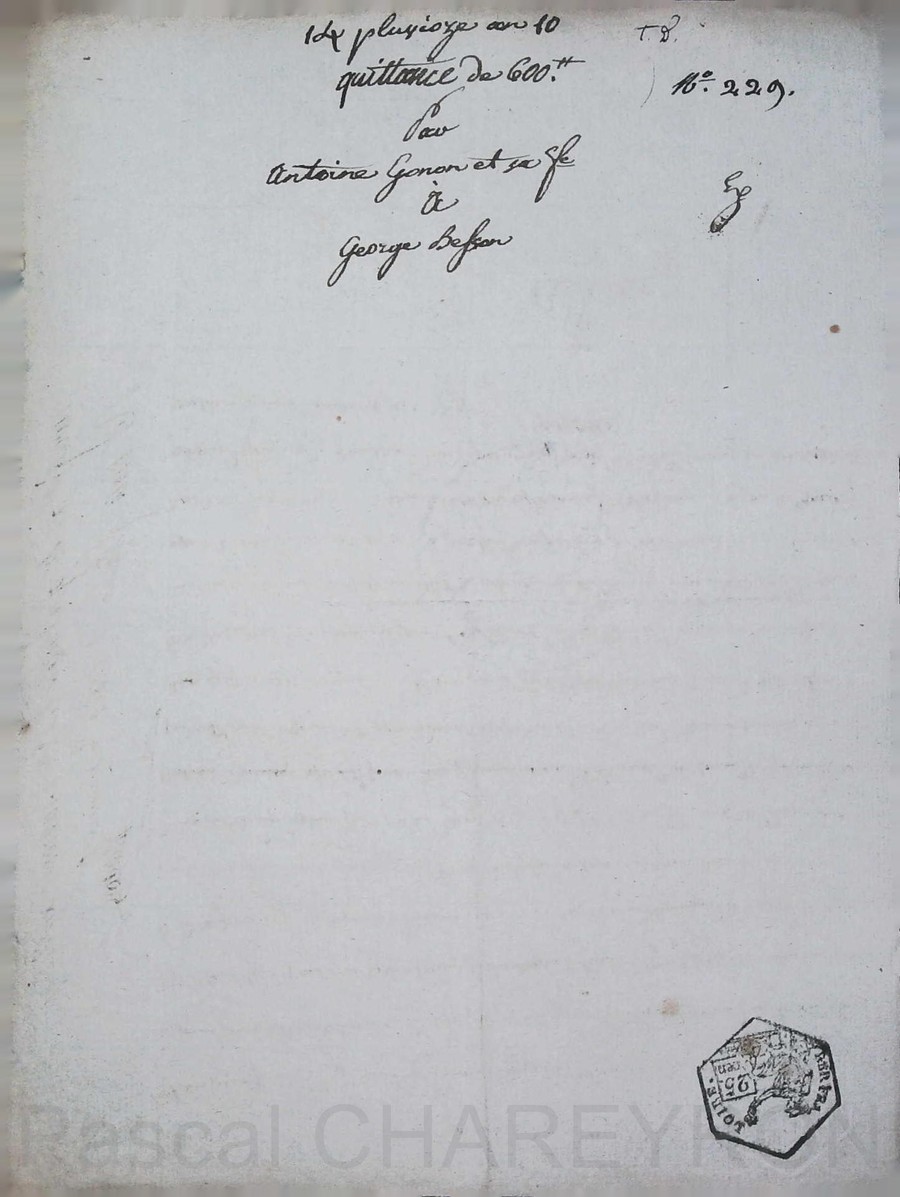 14 pluvioze an 10
T. D.
quittance de 600.tt
No. 229.
Par
Antoine Gonon et sa fe
à
George Besson
25
cen
LOIRE.
Rascal CHAREYRON